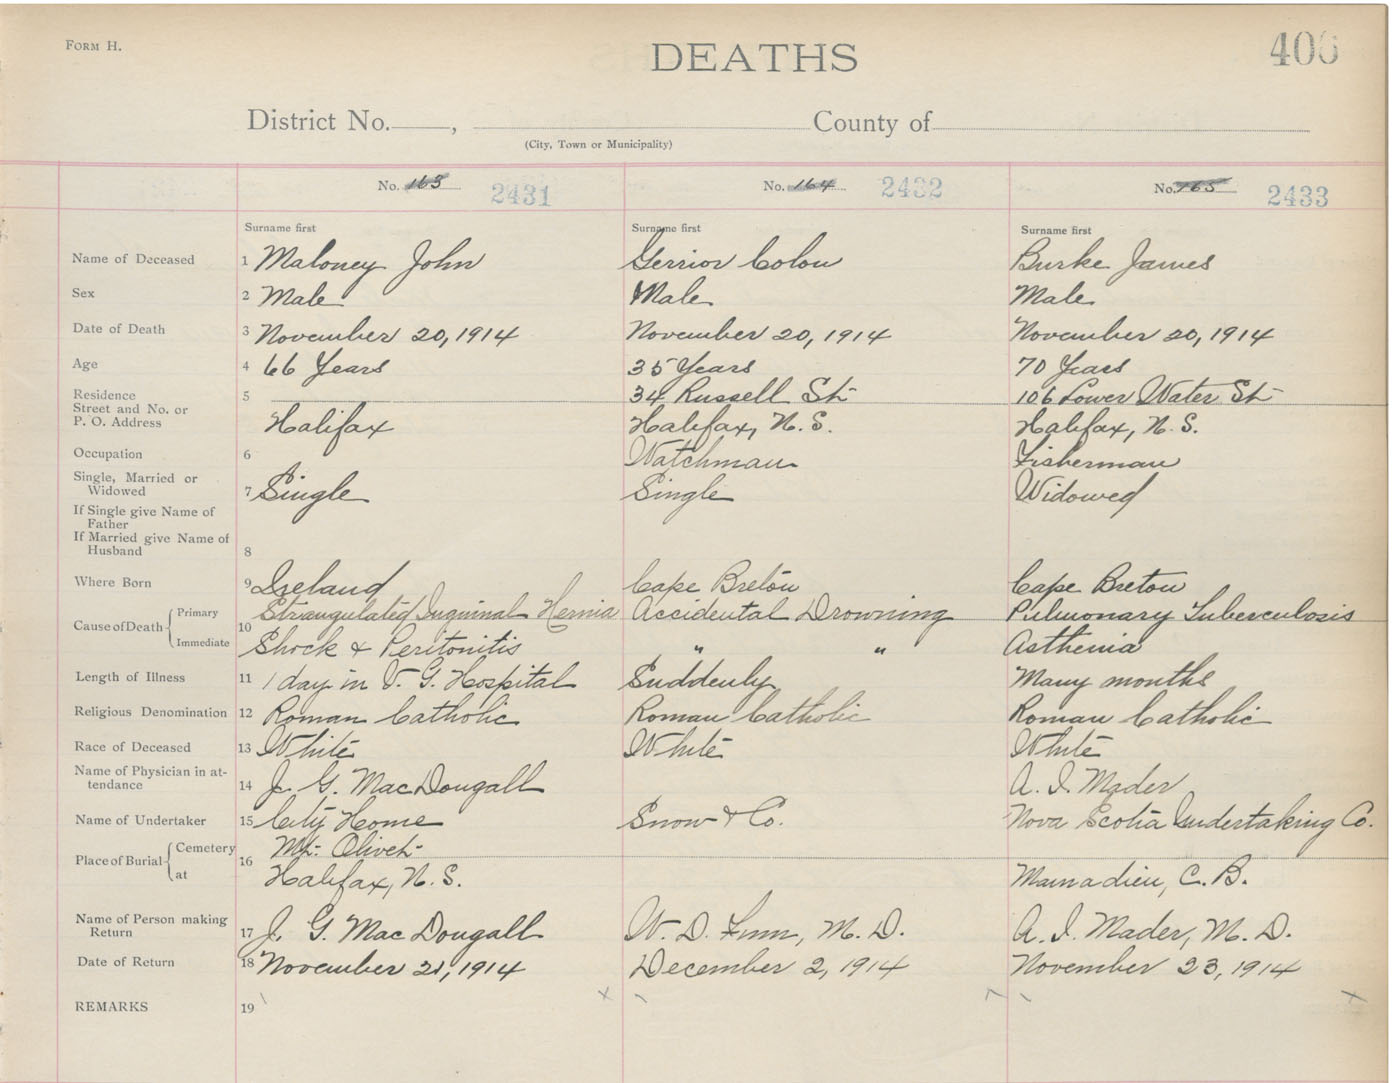 FORM H.
DEATHS
406
District No. , County of
(City, Town or Municipality)
No. 163 2431
No. 164 2432
No. 165 2433
Surname first Surname first Surname first
Name of Deceased 1 Maloney John Gerrior Colon Burke James
Sex 2 Male Male Male
Date of Death 3 November 20, 1914 November 20, 1914 November 20, 1914
Age 4 66 Years 35 Years 70 Years
Residence 5 34 Russell St. 106 Lower Water St.
Street and No. or
P. O. Address Halifax Halifax, N. S. Halifax, N. S.
Occupation 6 Watchman Fisherman
Single, Married or
Widowed 7 Single Single Widowed
If Single give Name of
Father
If Married give Name of
Husband 8
Where Born 9 Ireland Cape Breton Cape Breton
Cause of Death Primary 10 Strangulated Inguinal Hernia Accidental Drowning Pulmonary Tuberculosis
Immediate Shock & Peritonitis " " Asthenia
Length of Illness 11 1 day in V. G. Hospital Suddenly Many months
Religious Denomination 12 Roman Catholic Roman Catholic Roman Catholic
Race of Deceased 13 White White White
Name of Physician in at-
tendance 14 J. G. MacDougall A. I. Mader
Name of Undertaker 15 City Home Snow & Co. Nova Scotia Undertaking Co.
Place of Burial Cemetery 16 Mt. Olivet
at Halifax, N. S. Mainadieu, C. B.
Name of Person making
Return 17 J. G. MacDougall W. D. Finn, M. D. A. I. Mader, M. D.
Date of Return 18 November 21, 1914 December 2, 1914 November 23, 1914
REMARKS 19